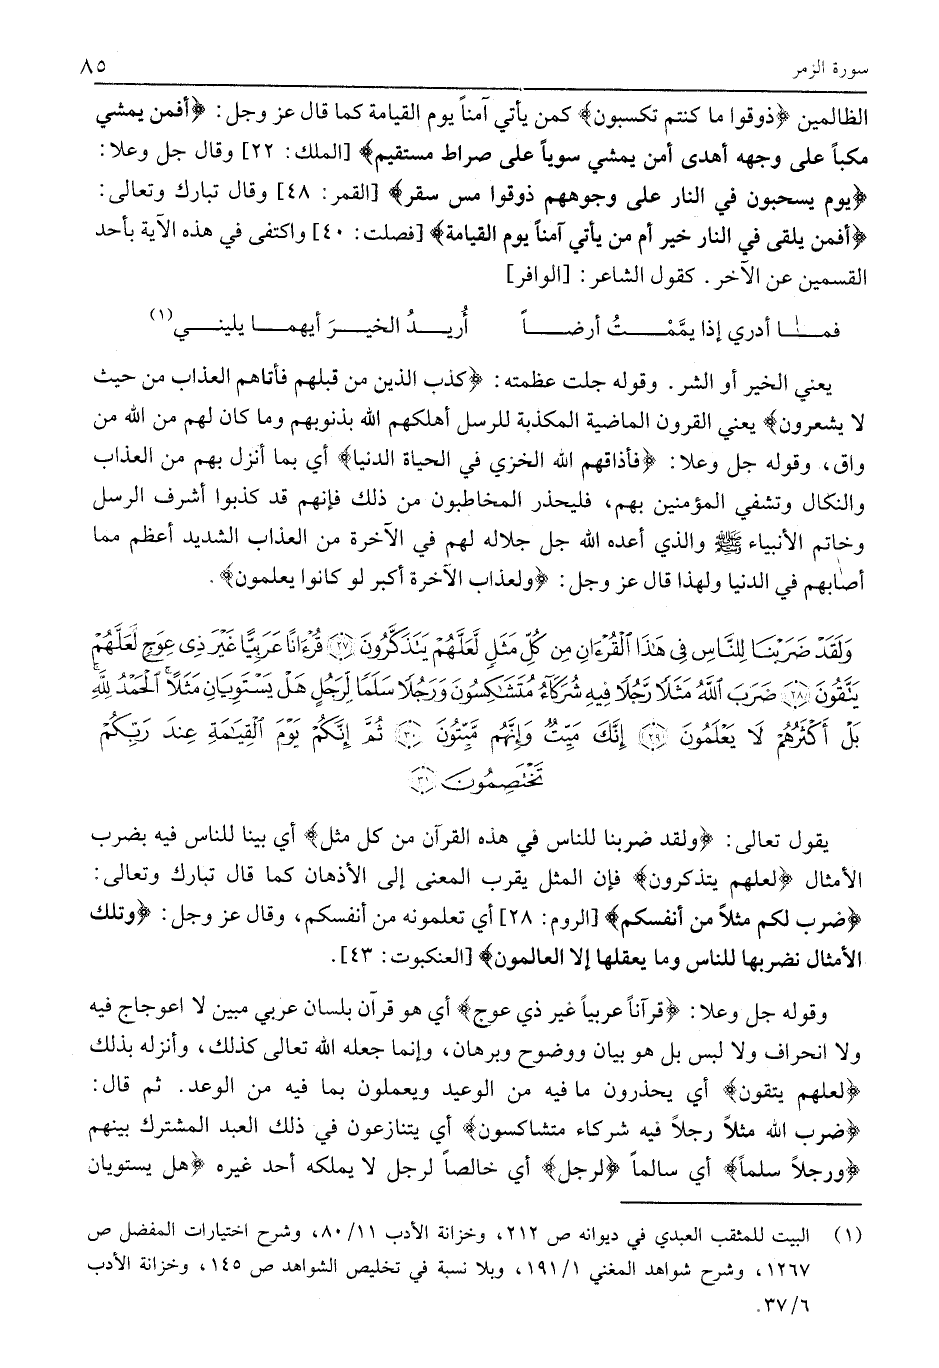 سورة الزمر ٨٥
الظالمين ﴿ذوقوا ما كنتم تكسبون﴾ كمن يأتي آمناً يوم القيامة كما قال عز وجل: ﴿أفمن يمشي
مكباً على وجهه أهدى أمن يمشي سوياً على صراط مستقيم﴾ [الملك: ٢٢] وقال جل وعلا:
﴿يوم يسحبون في النار على وجوههم ذوقوا مس سقر﴾ [القمر: ٤٨] وقال تبارك وتعالى:
﴿أفمن يلقى في النار خير أم من يأتي آمناً يوم القيامة﴾ [فصلت: ٤٠] واكتفى في هذه الآية بأحد
القسمين عن الآخر. كقول الشاعر: [الوافر]
فمــا أدري إذا يمَّمْــتُ أرضــاً أُريــدُ الخيــرَ أيهمــا يلينــي(١)
يعني الخير أو الشر. وقوله جلت عظمته: ﴿كذب الذين من قبلهم فأتاهم العذاب من حيث
لا يشعرون﴾ يعني القرون الماضية المكذبة للرسل أهلكهم الله بذنوبهم وما كان لهم من الله من
واق، وقوله جل وعلا: ﴿فأذاقهم الله الخزي في الحياة الدنيا﴾ أي بما أنزل بهم من العذاب
والنكال وتشفي المؤمنين بهم، فليحذر المخاطبون من ذلك فإنهم قد كذبوا أشرف الرسل
وخاتم الأنبياء ﷺ والذي أعده الله جل جلاله لهم في الآخرة من العذاب الشديد أعظم مما
أصابهم في الدنيا ولهذا قال عز وجل: ﴿ولعذاب الآخرة أكبر لو كانوا يعلمون﴾.
وَلَقَدْ ضَرَبْنَا لِلنَّاسِ فِي هَٰذَا ٱلْقُرْءَانِ مِن كُلِّ مَثَلٍ لَّعَلَّهُمْ يَتَذَكَّرُونَ ﴿٢٧﴾ قُرْءَانًا عَرَبِيًّا غَيْرَ ذِى عِوَجٍ لَّعَلَّهُمْ
يَتَّقُونَ ﴿٢٨﴾ ضَرَبَ ٱللَّهُ مَثَلًا رَّجُلًا فِيهِ شُرَكَآءُ مُتَشَٰكِسُونَ وَرَجُلًا سَلَمًا لِّرَجُلٍ هَلْ يَسْتَوِيَانِ مَثَلًا ۚ ٱلْحَمْدُ لِلَّهِ ۚ
بَلْ أَكْثَرُهُمْ لَا يَعْلَمُونَ ﴿٢٩﴾ إِنَّكَ مَيِّتٌ وَإِنَّهُم مَّيِّتُونَ ﴿٣٠﴾ ثُمَّ إِنَّكُمْ يَوْمَ ٱلْقِيَٰمَةِ عِندَ رَبِّكُمْ
تَخْتَصِمُونَ ﴿٣١﴾
يقول تعالى: ﴿ولقد ضربنا للناس في هذه القرآن من كل مثل﴾ أي بينا للناس فيه بضرب
الأمثال ﴿لعلهم يتذكرون﴾ فإن المثل يقرب المعنى إلى الأذهان كما قال تبارك وتعالى:
﴿ضرب لكم مثلاً من أنفسكم﴾ [الروم: ٢٨] أي تعلمونه من أنفسكم، وقال عز وجل: ﴿وتلك
الأمثال نضربها للناس وما يعقلها إلا العالمون﴾ [العنكبوت: ٤٣].
وقوله جل وعلا: ﴿قرآناً عربياً غير ذي عوج﴾ أي هو قرآن بلسان عربي مبين لا اعوجاج فيه
ولا انحراف ولا لبس بل هو بيان ووضوح وبرهان، وإنما جعله الله تعالى كذلك، وأنزله بذلك
﴿لعلهم يتقون﴾ أي يحذرون ما فيه من الوعيد ويعملون بما فيه من الوعد. ثم قال:
﴿ضرب الله مثلاً رجلاً فيه شركاء متشاكسون﴾ أي يتنازعون في ذلك العبد المشترك بينهم
﴿ورجلاً سلماً﴾ أي سالماً ﴿لرجل﴾ أي خالصاً لرجل لا يملكه أحد غيره ﴿هل يستويان
(١) البيت للمثقب العبدي في ديوانه ص ٢١٢، وخزانة الأدب ١١/ ٨٠، وشرح اختيارات المفضل ص
١٢٦٧، وشرح شواهد المغني ١/ ١٩١، وبلا نسبة في تخليص الشواهد ص ١٤٥، وخزانة الأدب
٦/ ٣٧.